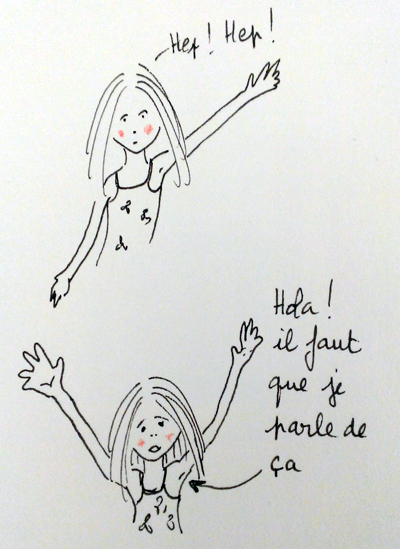 Hep! Hep!
Hola!
il faut
que je
parle de
ça